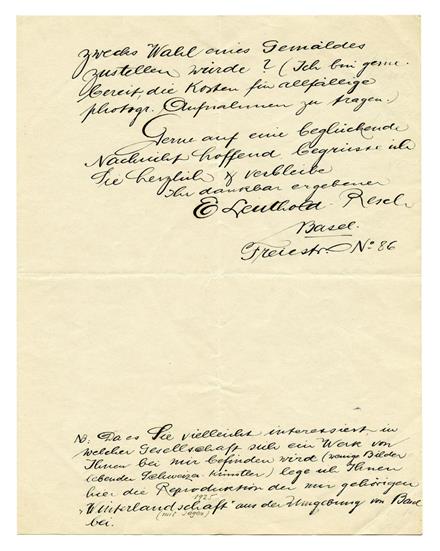 zwecks Wahl eines Gemäldes
zustellen würde? (Ich bin gerne
bereit die Kosten für allfällige
photogr. Aufnahmen zu tragen.)
Gerne auf eine beglückende
Nachricht hoffend begrüsse ich
Sie herzlich & verbleibe
Ihr dankbar ergebener
E Leuthold-Resch
Basel.
Freiestr. No 86
NB: Da es Sie vielleicht interessiert in
welcher Gesellschaft sich ein Werk von
Ihnen bei mir befinden wird (wenige Bilder
lebender Schweizer Künstler) lege ich Ihnen
hier die Reproduktion der mir gehörigen
1925
"Winterlandschaft" aus der Umgebung von Basel
(mit Jäger)
bei.